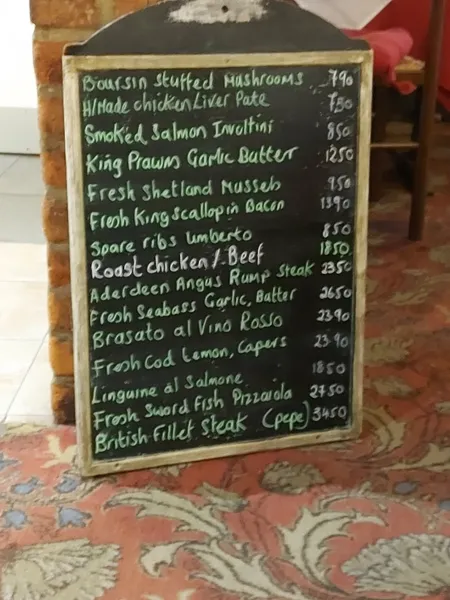 Boursin stuffed Mushrooms 790
H/Made chicken Liver Pate 750
Smoked Salmon Involtini 850
King Prawn Garlic Butter 1250
Fresh Shetland Mussels 950
Fresh King scallop in Bacon 1390
Spare ribs Umberto 850
Roast chicken / Beef 1850
Aderdeen Angus Rump Steak 2350
Fresh Seabass Garlic, Butter 2650
Brasato al Vino Rosso 2390
Fresh Cod Lemon, Capers 2390
Linguine al Salmone 1850
Fresh Sword fish Pizzaiola 2750
British Fillet Steak (pepe) 3450